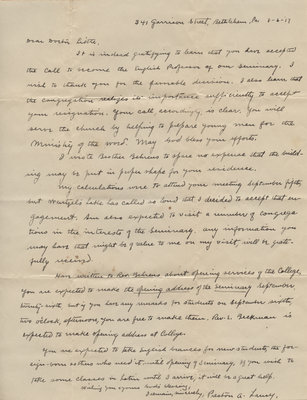 341 Garrison Street, Bethlehem Pa. 8-6-17
Dear Doctor Little,
It is indeed gratifying to learn that you have accepted
the call to become the English Professor of our Seminary. I
wish to thank you for the favorable decision. I also learn that
the congregation realizes its importance sufficiently to accept
your resignation. Your call accordingly, is clear. You will
serve the church by helping to prepare young men for the
Ministry of the Word. May God bless your efforts.
I wrote Brother Behrens to spare no expense that the build-
ing may be put in proper shape for your residence.
My calculations were to attend your meeting September fifth,
but lake has called so loud that I decided to accept that en-
gagement. Am also expected to visit a number of congrega-
tions in the interests of the Seminary. Any information you
may have that might be of value to me on my visit will be grate-
fully received.
Have written to Rev. Behrens about opening services of the College.
You are expected to make the opening address of the Seminary September,
twenty sixth, but if you have any remarks for students on September sixth,
two o'clock, afternoon, you are free to make them. Rev. L. Beckman is
expected to make opening address at College.
You are expected to take English branches for new students, the for-
eign-born ones who need it until opening of Seminary. If you wish to
take some classes in Latin until I arrive, it will be a great help.
Wishing you a good vacation,
I remain, sincerely, Preston A. Laury.